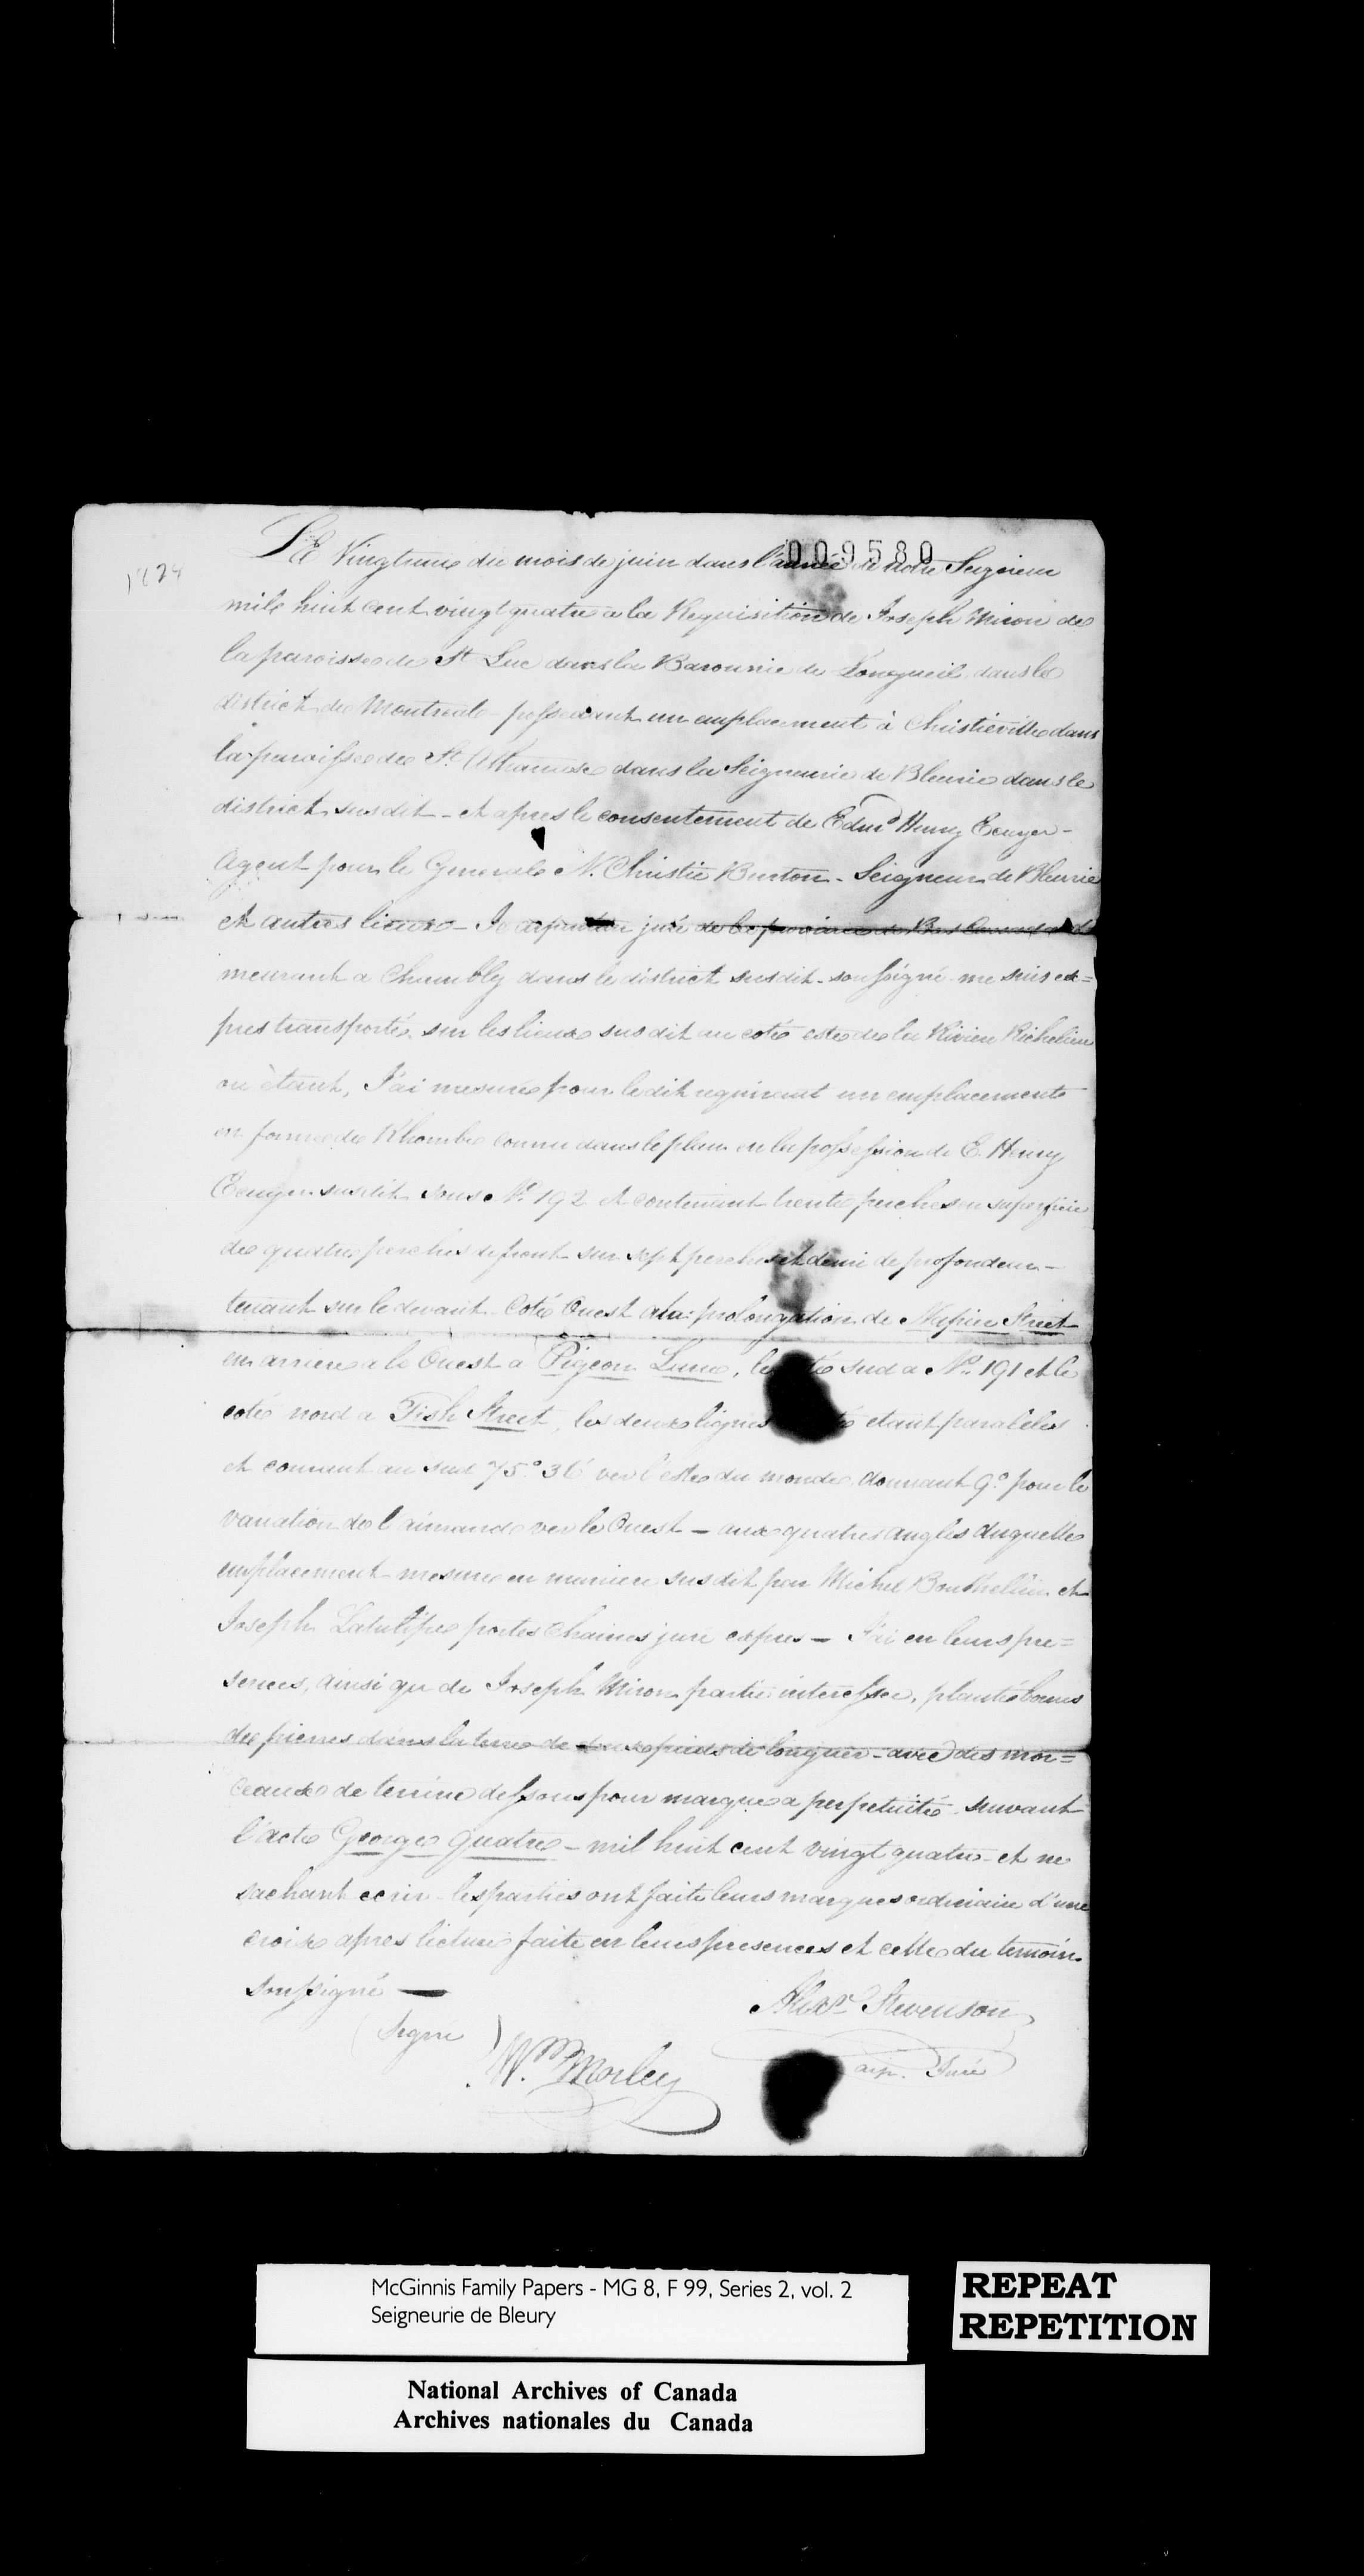 009580
1824
Le Vingtune du mois de juin dans l'année de notre Seigneur
mile huit cent vingt quatre a la Requisition de Joseph Miron de
la paroisse de St Luc dans la Baronnie de Longueil dans le
district de Montreale - possedant un emplacement à Christieville dans
la paroisse de St Athanase dans la Seigneurie de Bleurie dans le
district susdit - et apres le consentement de Edmd Henry Ecuyer -
Agent pour le Generale N. Christie Burton - Seigneur de Bleurie
et autres lieux - Je arpenteur juré de la province de Bas Canada de
meurant a Chambly dans le district susdit - soussigné me suis ex=
pres transporté sur les lieux susdit au coté este de la Riviere Richelieu
ou étant, J'ai mesuré pour le dit requirant un emplacement
en forme de Rhombe connu dans le plan en la possession de E. Henry
Ecuyer susdit sous No. 192 et contenant trente perches en superficie
de quatre perches de front sur sept perches et demi de profondeur -
tenant sur le devant Coté Ouest a la prolongation de Napier Street
en arriere a le Ouest a Pigeon Lane, le coté sud a No. 191 et le
coté nord a Fish Street, les deux lignes etant paralèles
et courant au sud 75.° 36' ver l'este du monde donnant 9.° pour la
variation de l'aimande ver le Ouest - aux quatres angles duquelle
emplacement mesuré en maniere susdit par Michel Bouthellier et
Joseph Latulipe portes Chaines juré expres - J'ai en leurs pre=
sences, ainsi que de Joseph Miron partie interessée, planté bornes
de pierres dans la terre de deux pieds de longuer - avec des mor=
ceaux de terrine dessous pour marque a perpetuité suivant
l'acte George Quatre - mil huit cent vingt quatre - et ne
sachant ecrir - les parties ont faite leurs marques ordinaire d'une
croix apres lecture faite en leurs presences et celle du temoin
soussigné -
(Signé) Wm Morley
Alexr Stevenson
arp. Juré
McGinnis Family Papers - MG 8, F 99, Series 2, vol. 2
Seigneurie de Bleury
REPEAT
REPETITION
National Archives of Canada
Archives nationales du Canada